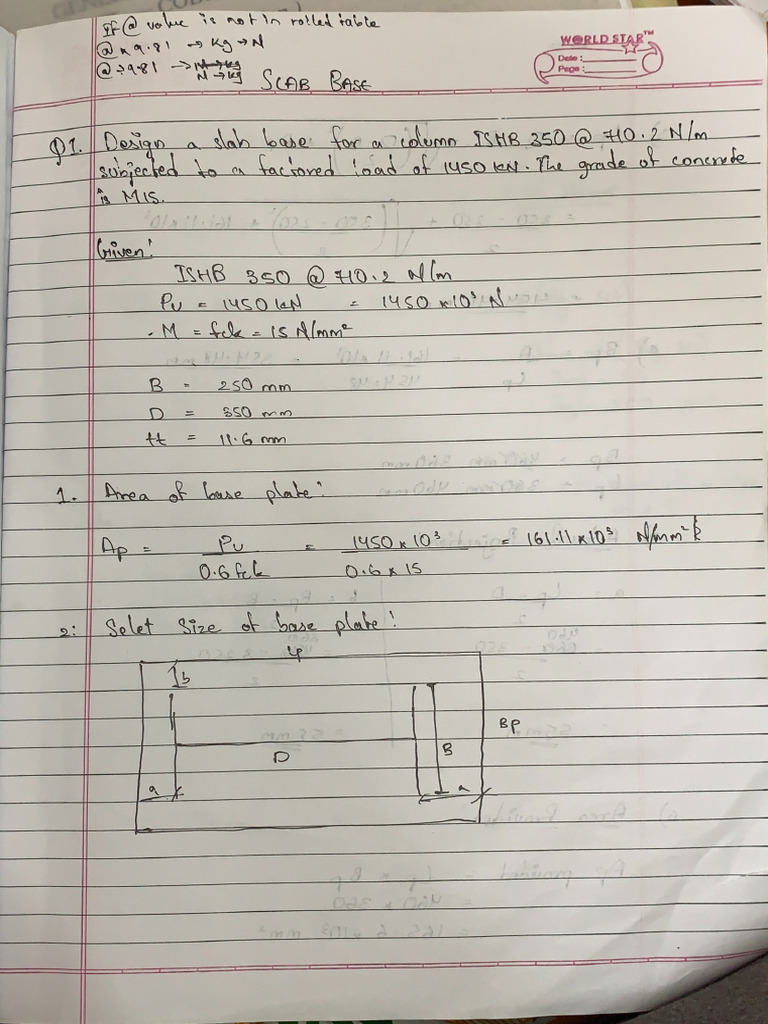 If @ value is not in rolled table
@ x 9.81 → Kg → N
@ ÷ 9.81 → N → kg
N → kg
WORLD STAR™
Date:
Page:
SLAB BASE
Q1. Design a slab base for a column ISHB 350 @ 710.2 N/m
subjected to a factored load of 1450 kN. The grade of concrete
is M15.
Given:
ISHB 350 @ 710.2 N/m
Pu = 1450 kN = 1450 x 10³ N
- M = fck = 15 N/mm²
B = 250 mm
D = 350 mm
tt = 11.6 mm
1. Area of base plate:
Ap = Pu / 0.6 fck = 1450 x 10³ / 0.6 x 15 = 161.11 x 10³ N/mm²
2: Selet Size of base plate:
Lp
b
Bp
D
B
a
a